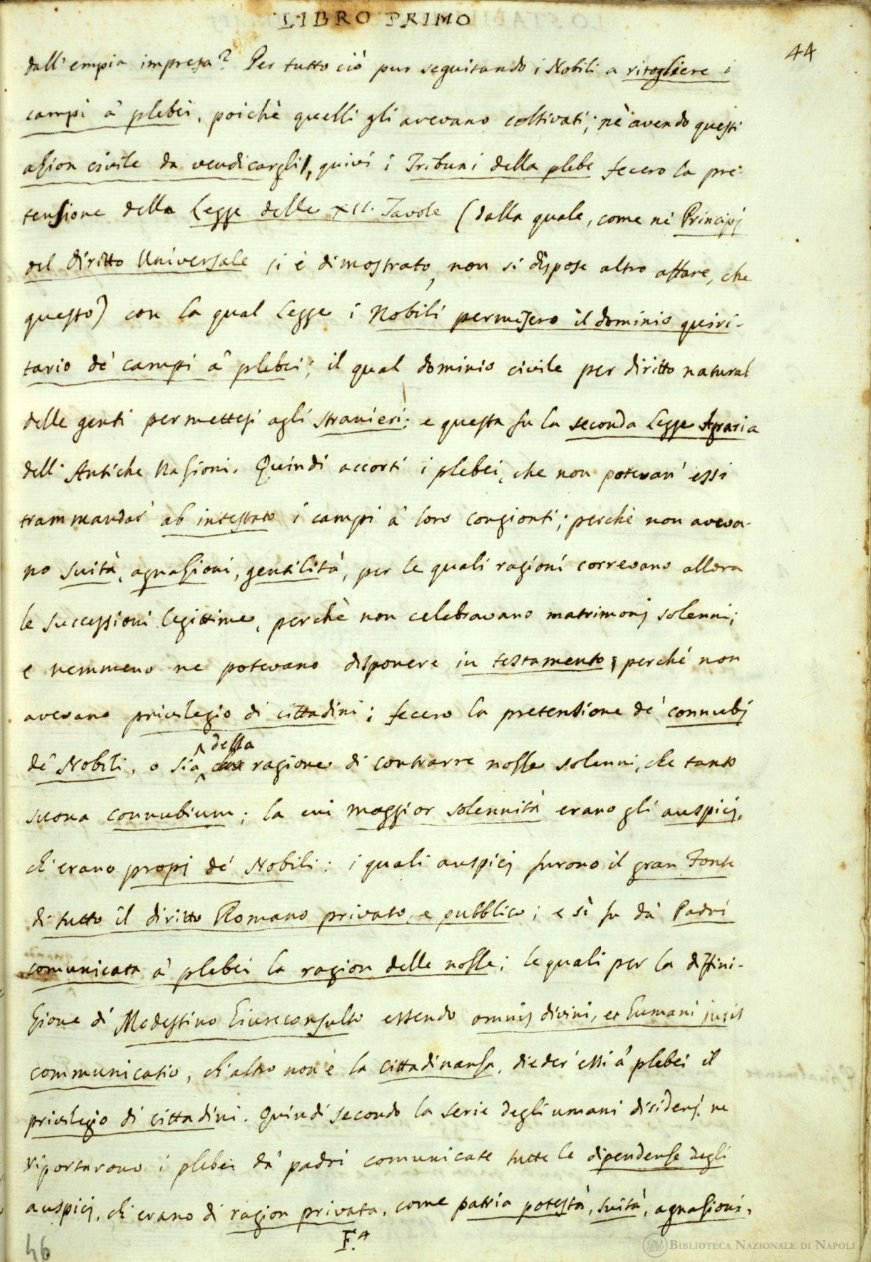 LIBRO PRIMO
44
dall'empia impresa? Per tutto ciò pur seguitando i Nobili a ritogliere i
campi a' plebei, poichè quelli gli avevano coltivati; nè avendo questi
azion civile da vendicargli, quivi i Tribuni della plebe fecero la pre-
tensione della Legge delle XII. Tavole (dalla quale, come ne' Principj
del diritto Universale si è dimostrato, non si dispose altro affare, che
questo) con la qual Legge i Nobili permisero il dominio quiri-
tario de' campi a' plebei; il qual dominio civile per diritto natural
delle genti permettesi agli stranieri: e questa fu la seconda Legge Agraria
dell'Antiche Nazioni. Quindi accorti i plebei, che non potevan' essi
trammandar' ab intestato i campi a' loro congionti; perchè non aveva-
no suità, agnazioni, gentilità, per le quali ragioni correvano allora
le successioni legittime, perchè non celebravano matrimonj solenni;
e nemmeno ne potevano disponere in testamento, perchè non
avevano privilegio di cittadini; fecero la pretensione de' connubj
de' Nobili, o sia della ragione di contrarre nozze solenni, che tanto
suona connubium; la cui maggior solennità erano gli auspicj,
ch'erano propj de' Nobili: i quali auspicj furono il gran Fonte
di tutto il diritto Romano privato, e pubblico; e sì fu da' Padri
comunicata a' plebei la ragion delle nozze; le quali per la diffini-
zione di Modestino Giureconsulto essendo omnis divini, et humani juris
communicatio, ch'altro non è la cittadinanza, dieder' essi a' plebei il
privilegio di cittadini. Quindi secondo la serie degli umani disiderj ne
riportarono i plebei da' padri comunicate tutte le dipendenze degli
auspicj, ch'erano di ragion privata, come patria potestà, suità, agnazioni,
F.4
46
BIBLIOTECA NAZIONALE DI NAPOLI